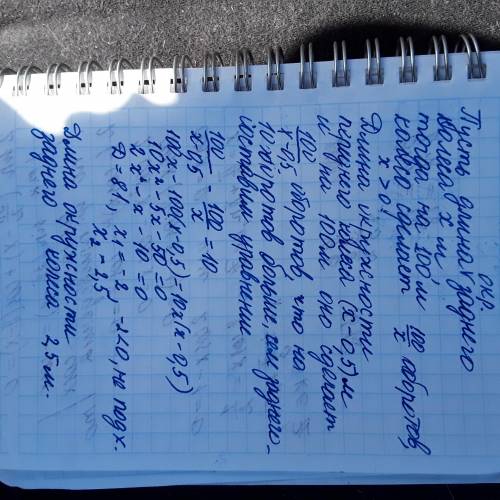 окр.
Пусть длина заднего
колеса x м,
тогда на 100 м 100/x оборотов
колесо сделает
x > 0!
Длина окружности
переднего колеса (x-0,5) м
и на 100 м оно сделает
100/x-0,5 оборотов, что на
10 оборотов больше, чем заднего.
составим уравнение
100/x-0,5 - 100/x = 10
100x - 100(x-0,5) = 10x(x-0,5)
10x² - 5x - 50 = 0
2x² - x - 10 = 0
D = 81, x₁ = -2, -2<0, не подх.
x₂ = 2,5
Длина окружности
заднего колеса 2,5 м.